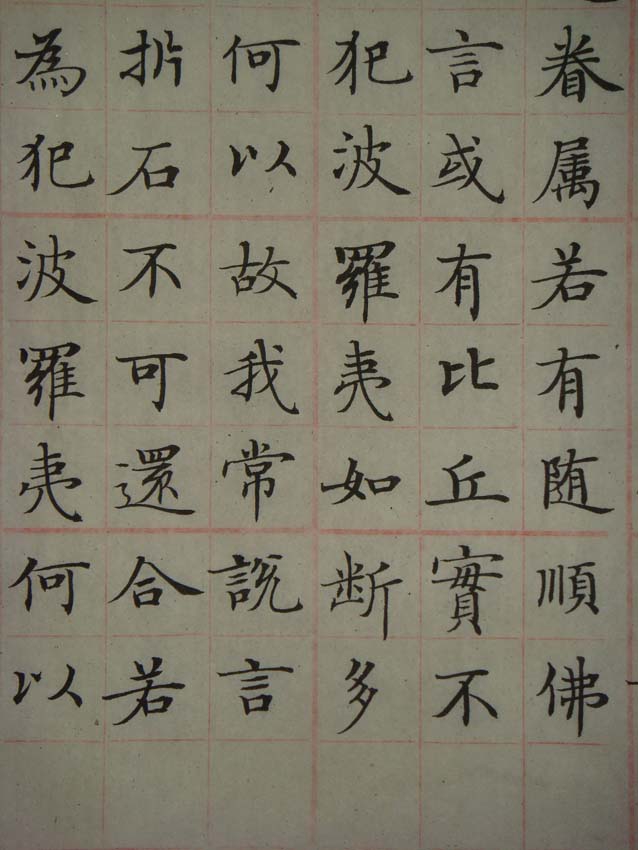 眷属若有随順佛
言或有比丘實不
犯波羅夷如断多
何以故我常説言
折石不可還合若
為犯波羅夷何以